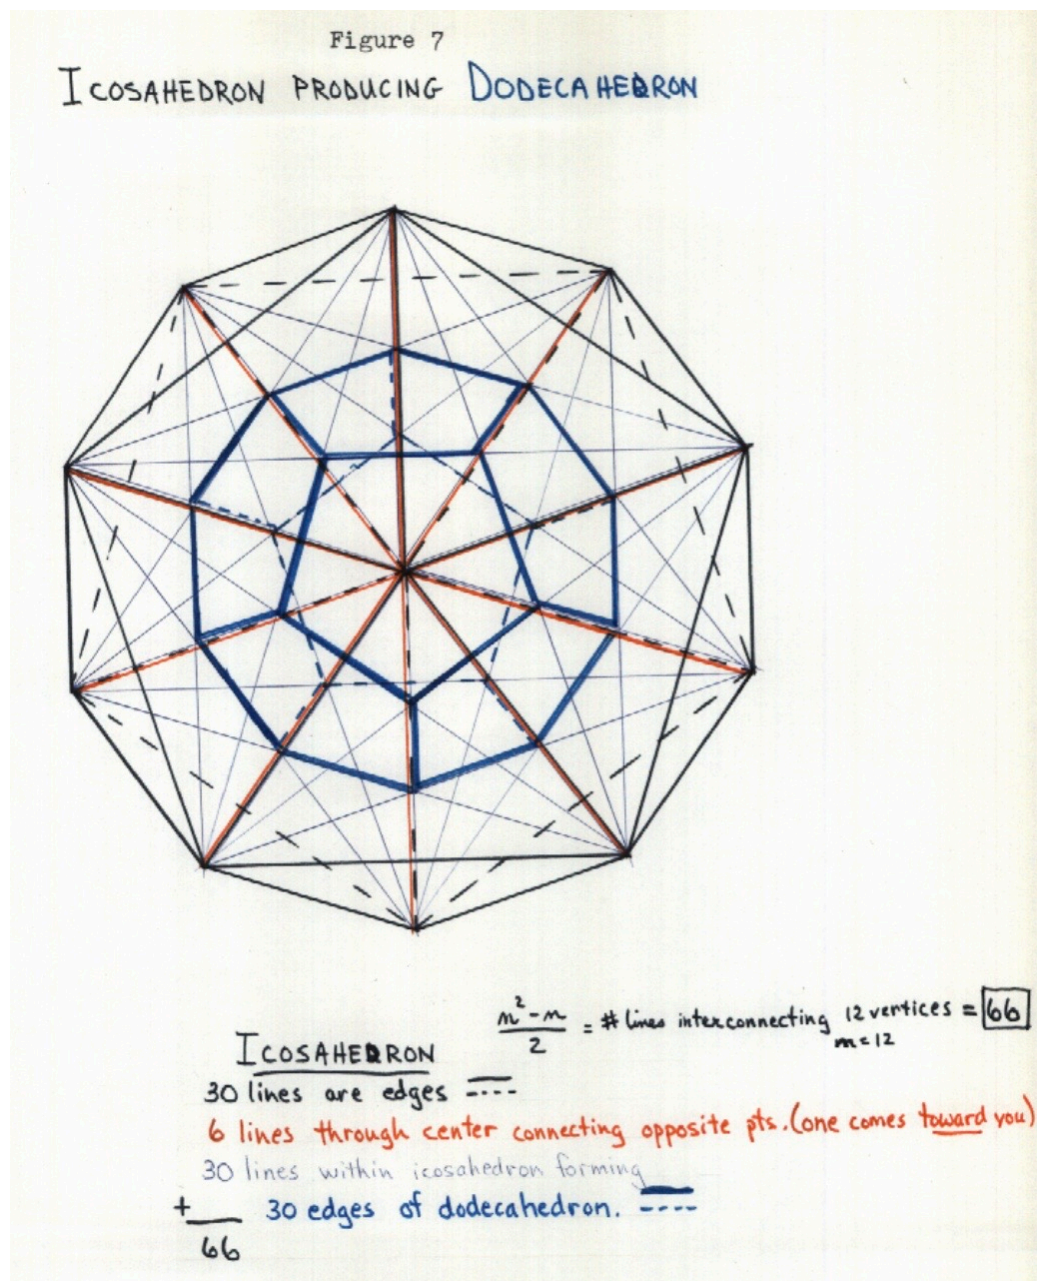 Figure 7
ICOSAHEDRON PRODUCING DODECAHEDRON
n²-n
2
= # lines interconnecting 12 vertices = 66
n=12
ICOSAHEDRON
30 lines are edges
6 lines through center connecting opposite pts. (one comes toward you)
30 lines within icosahedron forming
+ 30 edges of dodecahedron.
66